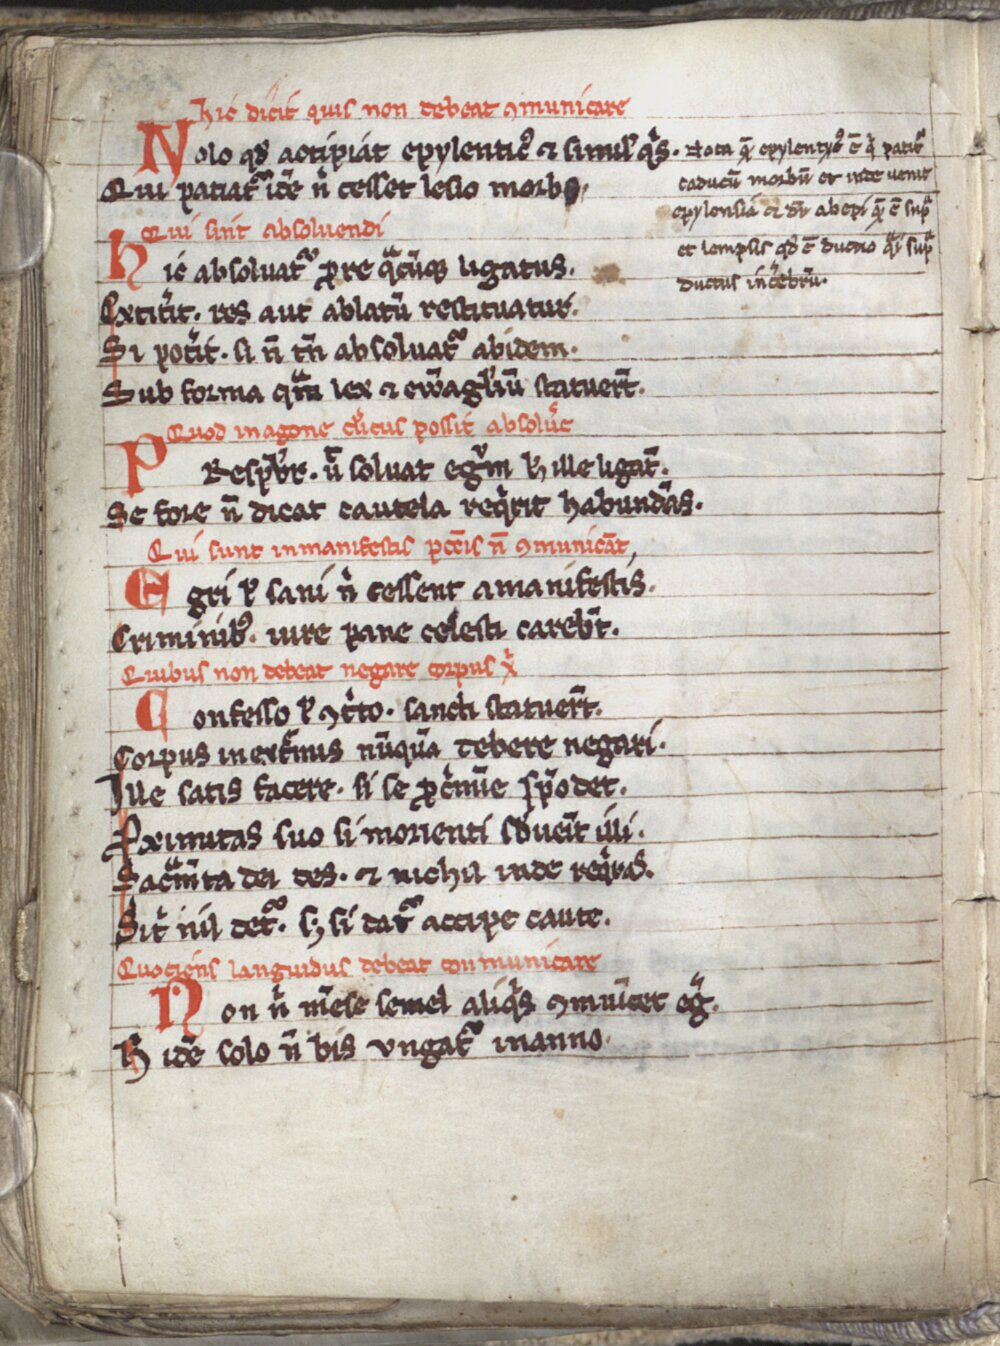 hic dicit quis non debeat ꝯmunicare
Nolo qđ accipiat epylentic᷒ ⁊ simul q̾s.
Qui patiat᷑ idē n̾ cesset lesio morbo
Qui sint absoluendi
Hic absoluat᷑ p̄re q̾cūq; ligatus.
Extit̾it. res aut ablatū restituatur.
Si pot̾it. si n̄ tn̄ absoluat᷑ abidem.
Sub forma q̾m lex ⁊ ew̄agl̾iū statuer̄t.
Quod in agone cl̾icus possit absolu̾e
P Resp̄br̄. ū soluat egr̾m ille ligat᷑.
Se fore n̄ dicat cautela req̾rit habundās.
Qui sunt in manifestis pccīs n̄ ꝯmunicāt
Egri ł sani n̾ cessent a manifestis.
Criminib᷒. iure pane celesti carebt̄.
Quibus non debeat negare corpus x̾
Confesso ł ꝯt̾to. sancti statuer̄t.
Corpus in ext̾mis nūquā debere negari.
Ille satis facere. si se p̾cmūe spōdet.
Prximitas suo si morienti sbueīt illi.
Sac̾mta dei des. ⁊ nichil inde req̾ras.
Sit̾ nil det᷑. sꝫ si dat᷑ accipe caute.
Quociens languidus debeat conmunicare
Non n̾ mēse semel aliq̾s ꝯmuīcet eg̾.
idē solo n̄ bis vngat᷑ in anno.
Nota q̾ epylentyc᷒ ē q̾ patit᷑
caducū morbū et inde venit
epylensia ⁊ dr̄ ab epi q̾ ē sup̾
et lempsis qđ ē ductio q̾i sup̾
ductus in c̾ebrū.